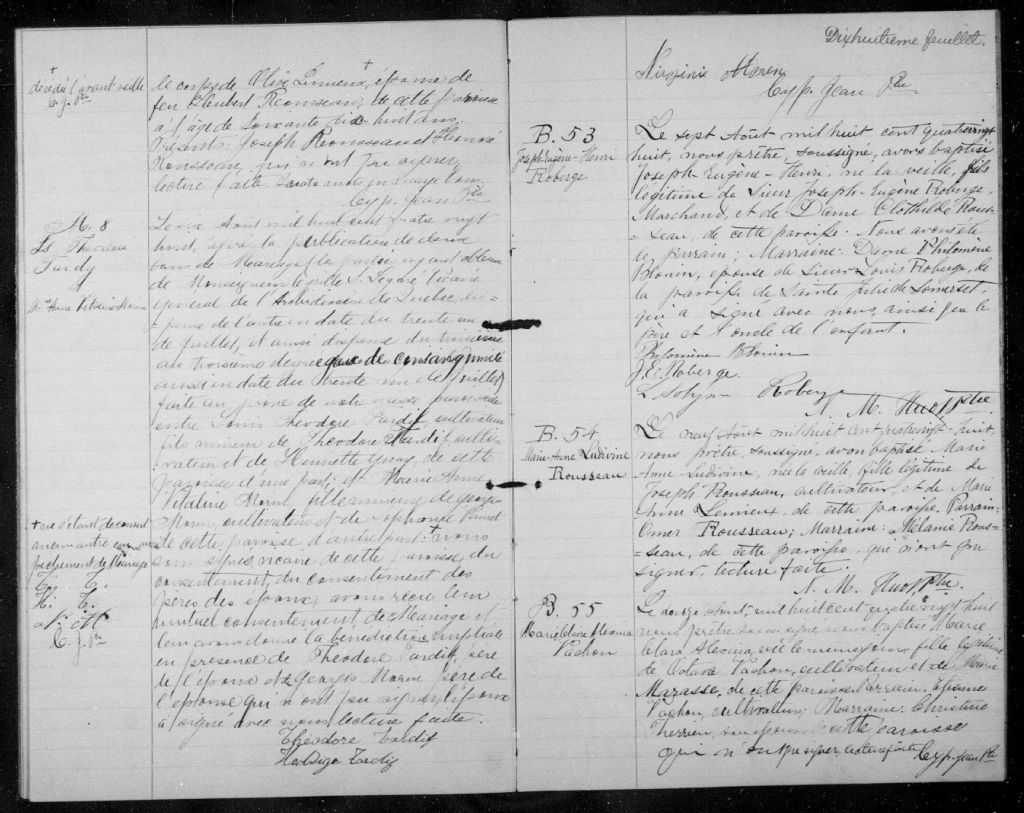 +
décédé l'avant veille
C. J. Ptre
le corps de Olive Lemieux, épouse de
feu Hubert Rousseau, de cette paroisse
à l'âge de soixante dix huit ans.
Présents: Joseph Rousseau et
Rousseau, qui n'ont pu signer
lecture faite.
Cyp. Jean Ptre
M. 8
Ls Théodore
Tardif
&
Mie Anne Vitaline Morin
Le six Août mil huit cent quatre vingt
huit, après la publication de deux
bans de Mariage, les parties ayant obtenu
de Monseigneur Légaré Vicaire
général de l'Archidiocèse de Québec dis-
pense de l'autre en date du trente un
de Juillet, et aussi dispense du troisième
au troisième degré égal de consanguinité
aussi en date du trente un de Juillet
faite au prône de notre messe paroissiale
entre Louis Théodore Tardif cultivateur
fils mineur de Théodore Tardif, culti-
vateur et de Henriette Guay, de cette
paroisse d'une part; et Marie Anne
Vitaline Morin fille mineure de George
Morin, cultivateur et de Sophronie
de cette paroisse d'autre part: + nous
soussigné, vicaire de cette paroisse, du
consentement, du consentement des
pères des époux, avons reçu leur
mutuel consentement de Mariage et
leur avons donné la bénédiction nuptiale
en présence de Théodore Tardif, père
de l'époux et de Georges Morin père de
l'épouse qui n'ont pu signer, l'époux
a signé avec nous lecture faite.
Théodore Tardif
Hedwige Tardif
+ ne s'étant découvert
aucun autre em-
pêchement de Mariage
T. T.
H. T.
C. J. Ptre
Dixhuitième feuillet.
Virginie Morin
Cyp. Jean Ptre
B. 53
Joseph-Eugène-Henri
Roberge
Le sept Août mil huit cent quatrevingt
huit, nous prêtre, soussigné, avons baptisé
Joseph-Eugène-Henri, né la veille, fils
légitime de Sieur Joseph-Eugène Roberge,
Marchand, et de Dame Clothilde Rous-
-seau, de cette paroisse. Nous avons été
le parrain; Marraine: Dame Philomène
Blouin, épouse de Sieur Louis Roberge, de
la paroisse de Sainte Julie de Somerset,
qui a signé avec nous, ainsi que le
père et l'oncle de l'enfant.
Philomène Blouin
J. E. Roberge.
Roberge
A. M. Huot Ptre
B. 54
Marie-Anne Ludivine
Rousseau
Le neuf Août mil huit cent quatrevingt-huit,
nous prêtre, soussigné, avons baptisé Marie
Anne Ludivine, née la veille, fille légitime de
Joseph Rousseau, cultivateur, et de Marie
Anne Lemieux, de cette paroisse. Parrain:
Omer Rousseau; Marraine: Mélanie Rous-
-seau, de cette paroisse, qui n'ont pu
signer, lecture faite.
A. M. Huot Ptre.
B. 55
Marie Claire Alexina
Vachon
Le douze Août mil huit cent quatre vingt huit
nous prêtre sous-signé, avons baptisé Marie
Clara Alexina, née le même jour, fille légitime
de Octave Vachon, cultivateur et de Marie
Marasse, de cette paroisse. Parrain: Etienne
Vachon, cultivateur; Marraine: Christine
Therrien, son épouse de cette paroisse
qui n'ont pu signer, lecture faite. Cyp. Jean Ptre